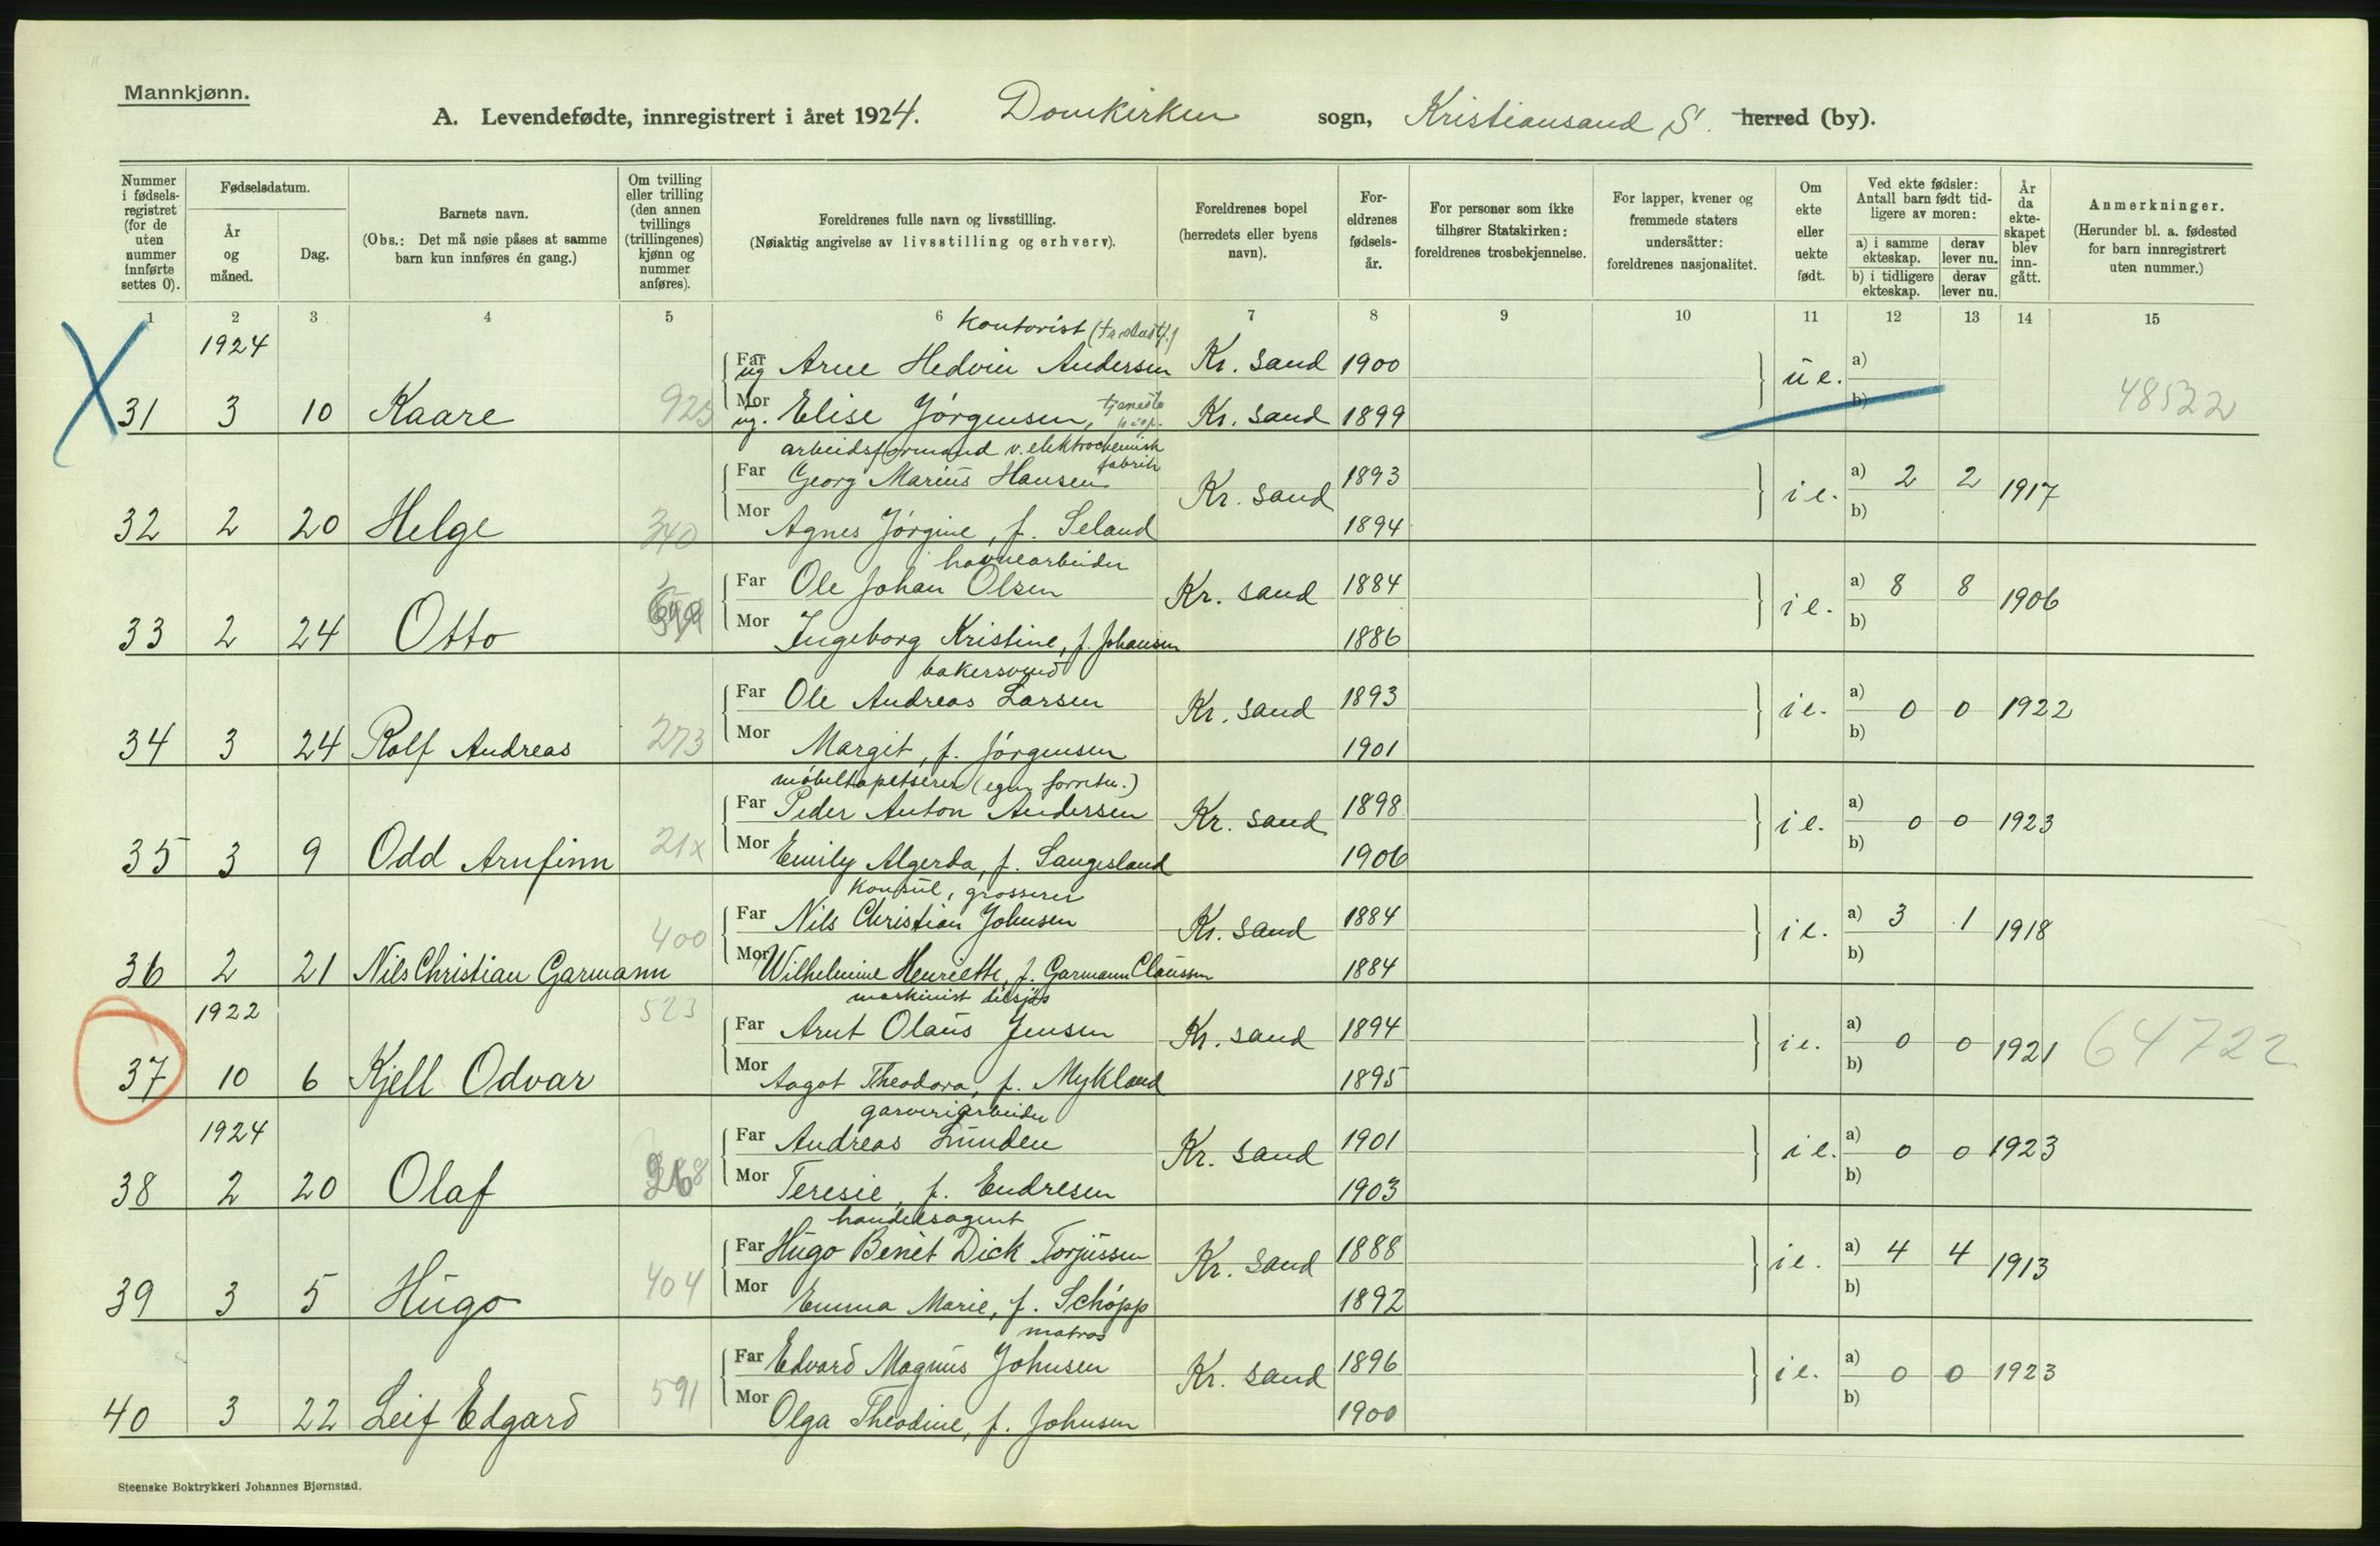 Mannkjønn.
A. Levendefødte, innregistrert i året 1924. Domkirken sogn, Kristiansand S. herred (by).
Nummer i fødsels-registret (for de uten nummer innførte settes 0).
Fødselsdatum.
År og måned.
Dag.
Barnets navn.
(Obs.: Det må nøie påses at samme barn kun innføres én gang.)
Om tvilling eller trilling (den annen tvillings (trillingenes) kjønn og nummer anføres).
Foreldrenes fulle navn og livsstilling.
(Nøiaktig angivelse av livsstilling og erhverv).
Foreldrenes bopel (herredets eller byens navn).
For-eldrenes fødsels-år.
For personer som ikke tilhører Statskirken: foreldrenes trosbekjennelse.
For lapper, kvener og fremmede staters undersåtter: foreldrenes nasjonalitet.
Om ekte eller uekte født.
Ved ekte fødsler: Antall barn født tid-ligere av moren:
a) i samme ekteskap.
derav lever nu.
b) i tidligere ekteskap.
derav lever nu.
År da ekte-skapet blev inn-gått.
Anmerkninger.
(Herunder bl. a. fødested for barn innregistrert uten nummer.)
1 2 3 4 5 6 7 8 9 10 11 12 13 14 15
1924 kontorist
Far ug Arne Hedvin Andersen Kr. sand 1900 u e. a)
31 3 10 Kaare 925 Mor ug. Elise Jørgensen, Kr. sand 1899 b) 48522
arbeidsformand v. elektrochemisk fabrik
Far Georg Marius Hansen Kr. sand 1893 i e. a) 2 2 1917
32 2 20 Helge 340 Mor Agnes Jørgine, f. Seland 1894 b)
havnearbeider
Far Ole Johan Olsen Kr. sand 1884 i e. a) 8 8 1906
33 2 24 Otto Mor Ingeborg Kristine, f. Johansen 1886 b)
bakersvend
Far Ole Andreas Larsen Kr. sand 1893 i e. a) 0 0 1922
34 3 24 Rolf Andreas 273 Mor Margit, f. Jørgensen 1901 b)
møbeltapetserer (egen forretn.)
Far Peder Anton Andersen Kr. sand 1898 i e. a) 0 0 1923
35 3 9 Odd Arnfinn 21x Mor Emily Algerda, f. Langesland 1906 b)
konsul, grosserer
Far Nils Christian Johnsen Kr. sand 1884 i e. a) 3 1 1918
36 2 21 Nils Christian Garmann 400 Mor Wilhelmine Henriette, f. Garmann Claussen 1884 b)
1922 523 maskinist tilsjøs
Far Arnt Olaus Jensen Kr. sand 1894 i e. a) 0 0 1921 64722
37 10 6 Kjell Odvar Mor Aagot Theodora, f. Mykland 1895 b)
1924 garveriarbeider
Far Andreas Lunden Kr. sand 1901 i e. a) 0 0 1923
38 2 20 Olaf Mor Teresie, f. Endresen 1903 b)
handelsagent
Far Hugo Benèt Dick Torjussen Kr. sand 1888 i e. a) 4 4 1913
39 3 5 Hugo 404 Mor Emma Marie, f. Schøpp 1892 b)
matros
Far Edvard Magnus Johnsen Kr. sand 1896 i e. a) 0 0 1923
40 3 22 Leif Edgard 591 Mor Olga Theodine, f. Johnsen 1900 b)
Steenske Boktrykkeri Johannes Bjørnstad.